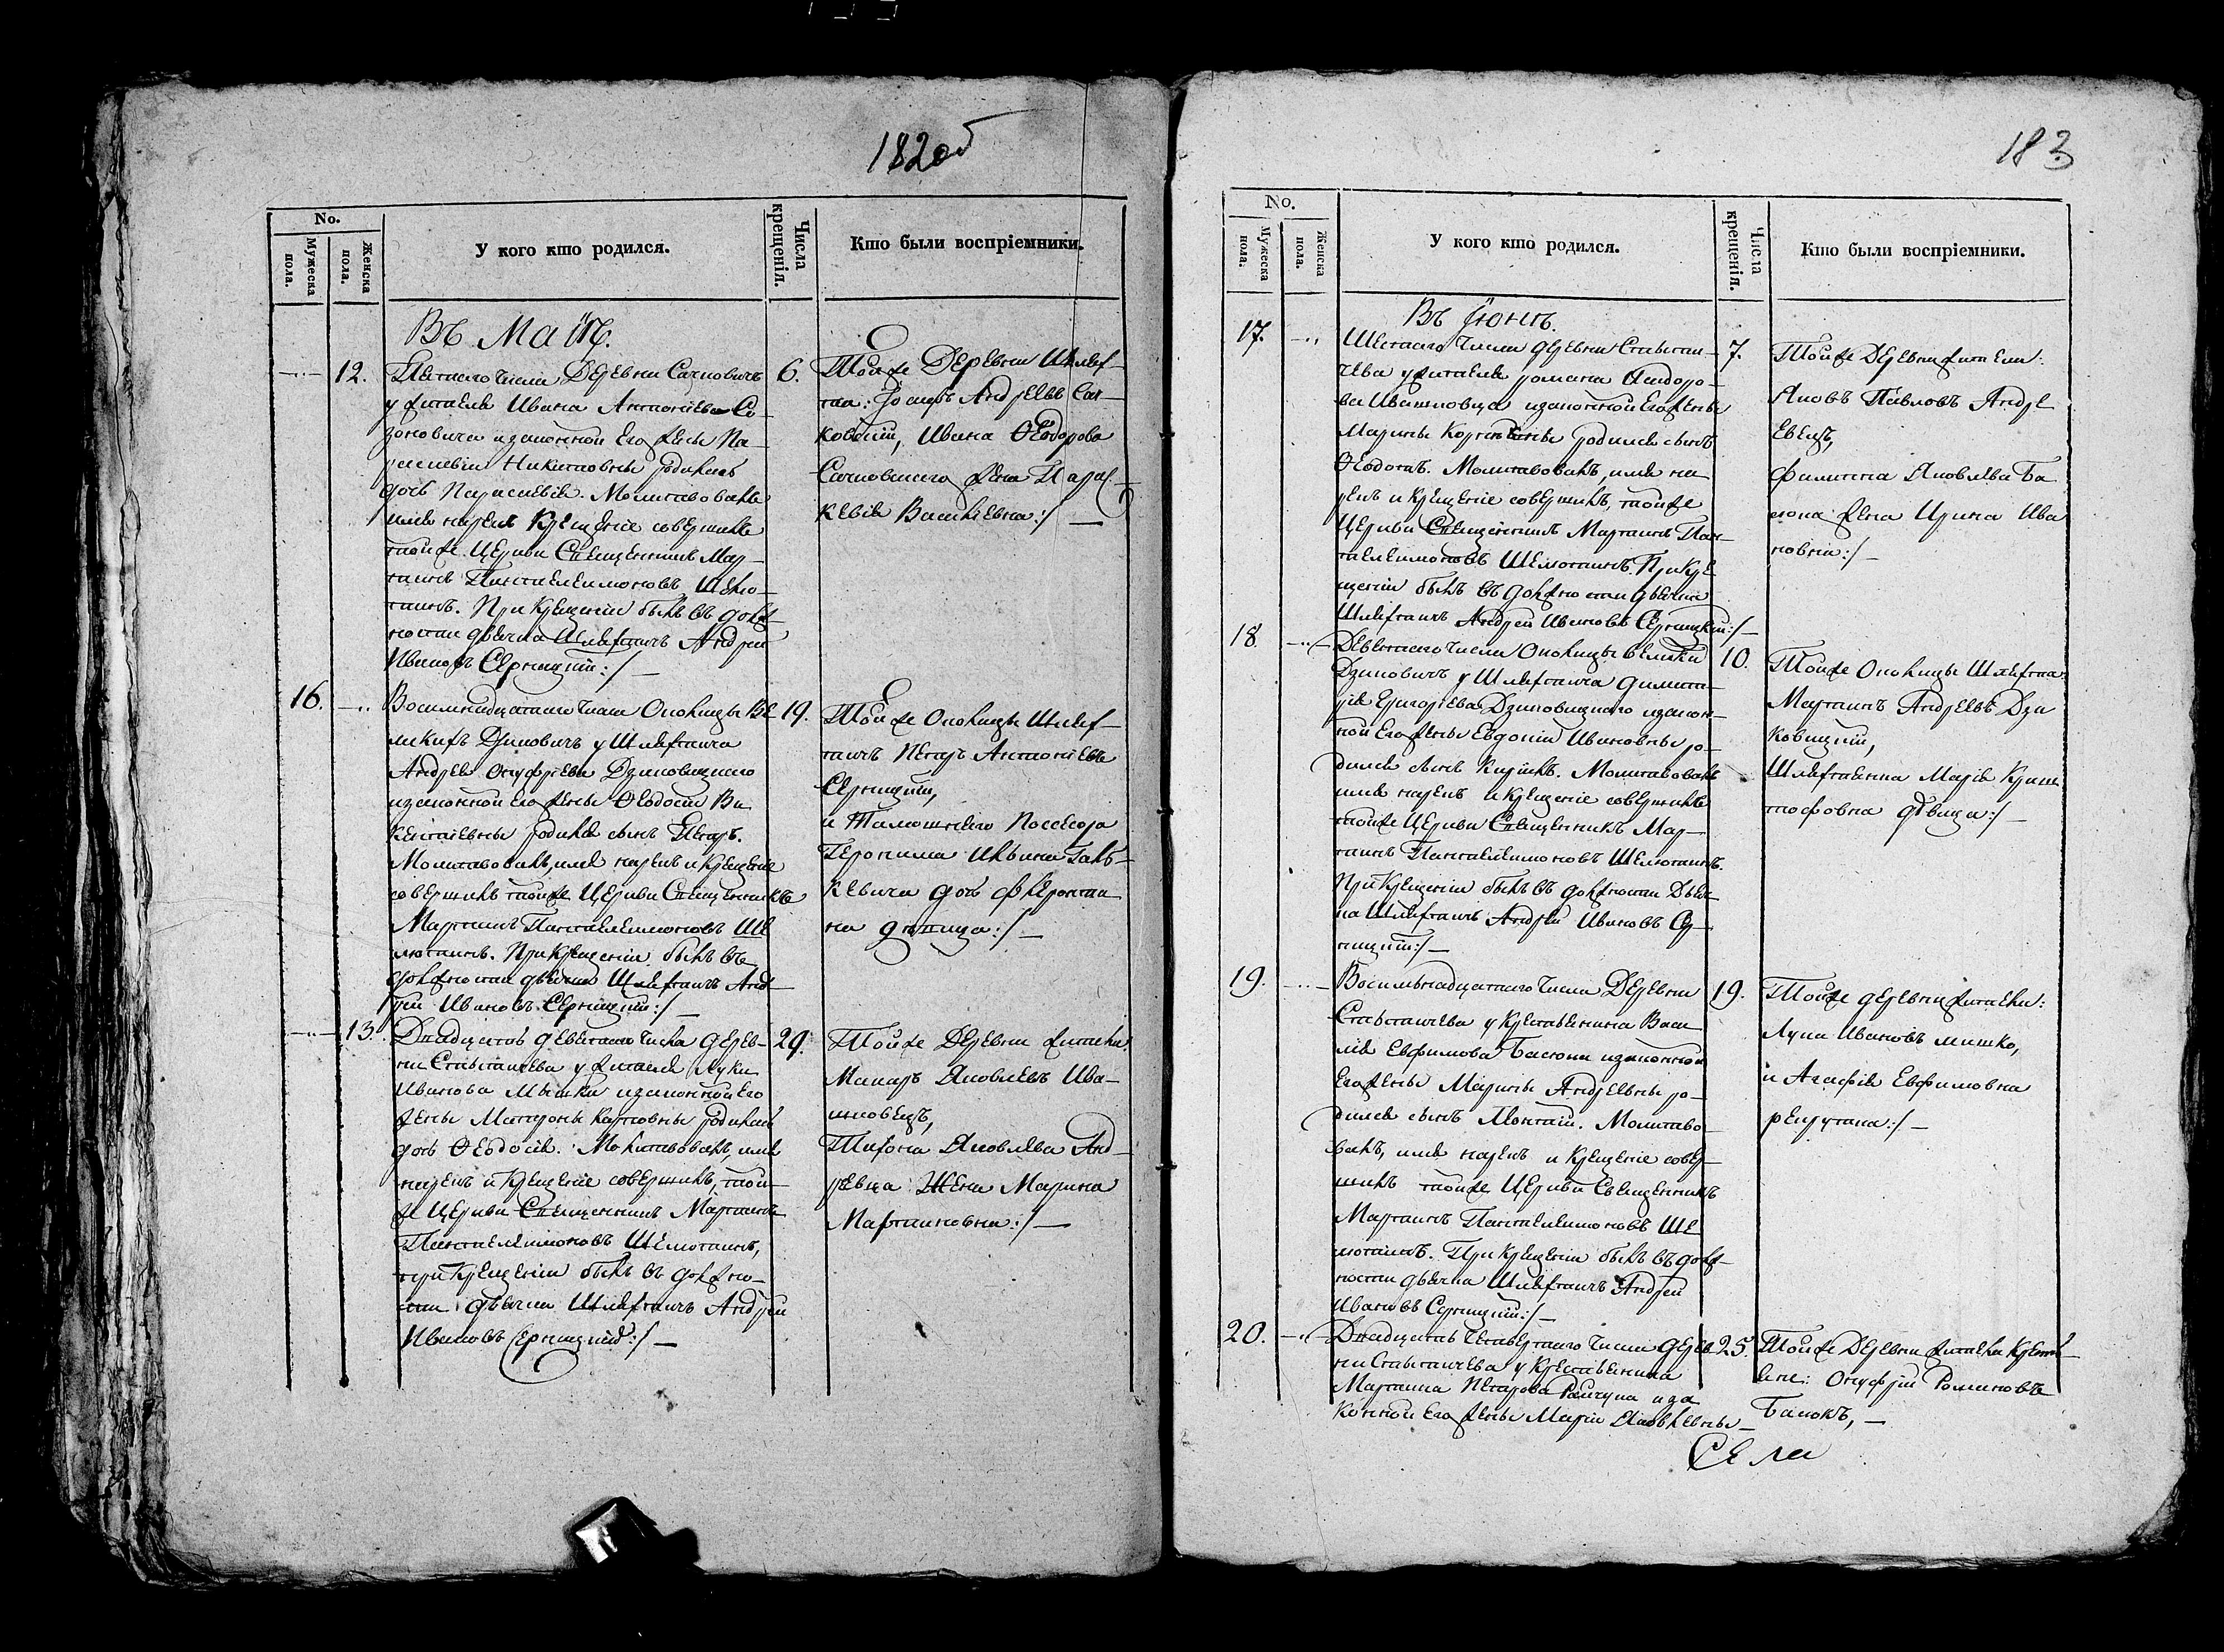 182об
No.
Мужеска пола.
Женска пола.
У кого кто родился.
Числа крещенія.
Кто были воспріемники.
Въ Маіѣ.
12.
Пятаго числа Деревни Сачковичъ
у жителя Ивана Антоніева Со-
зоновича и законной его жены Па-
раскевіи Никитовны родилась
дочь Параскевія. Молитвовалъ
имя нарекъ крещеніе совершилъ
тойже Церкви Священникъ Мар-
тинъ Пантелеимоновъ Шеню-
тинъ. При крещеніи былъ въ долж-
ности дьячка Шляхтичъ Андрей
Ивановъ Серницкій:/—
6.
Тойже Деревни Шлях-
та: Іосифъ Андреевъ Сач-
ковскій, Ивана Ѳеодорова
Сачковскаго жена Парас-
кевія Васильевна:/—
16.
Восемнадцатаго числа Околицы Ве-
ликихъ Дзиковичъ у Шляхтича
Андрея Онуфріева Дзиковицкаго
и законной его жены Ѳеодосіи Ви-
кентіевны родился сынъ Петръ.
Молитвовалъ, имя нарекъ и крещеніе
совершилъ тойже Церкви Священникъ
Мартинъ Пантелеимоновъ Ше-
лютинъ. При крещеніи былъ въ
должности дьячка Шляхтичъ Анд-
рей Ивановъ Серницкій:/—
19.
Тойже Околицы Шлях-
тичъ Петръ Антоніевъ
Серницкій,
и Тамошняго Поссесора
Геронима Ильина
кевича дочь
на дѣвица:/—
13.
Двадцать девятаго числа Дерев-
ни Ставычева у жителя Луки
Иванова Мышки и законной его
жены Матроны Карповны родилась
дочь Ѳеодосія. Молитвовалъ, имя
нарекъ и крещеніе совершилъ, той-
же Церкви Священникъ Мартинъ
Пантелеимоновъ Шелютинъ,
при крещеніи былъ въ должно-
сти дьячка Шляхтичъ Андрей
Ивановъ Серницкій:/—
29.
Тойже Деревни жители:
Макаръ Яковлевъ Ива-
шковецъ,
Тихона Яковлева Анд-
ревца Жена Марина
Мартиновна:/—
183
No.
Мужеска пола.
Женска пола.
У кого кто родился.
Числа крещенія.
Кто были воспріемники.
Въ Іюнѣ.
17.
Шестаго числа деревни Ставычи-
чева у жителя Романа Исидоро-
ва Ивашковца и законной его жены
Марины родился сынъ
Ѳеодотъ. Молитвовалъ, имя на-
рекъ и крещеніе совершилъ, тойже
Церкви Священникъ Мартинъ Пан-
телеимоновъ Шелютинъ. При кре-
щеніи былъ въ должности дьячка
Шляхтичъ Андрей Ивановъ Серницкій:/—
7.
Тойже Деревни жители:
Яковъ Павловъ Андре-
евецъ,
Филиппа Яковлева Ба-
сюка жена Ирина Ива-
новна:/—
18.
Девятаго числа Околицы Великихъ
Дзиковичъ у Шляхтича Димит-
рія Григорьева Дзиковицкаго и закон-
ной его жены Евдокіи Ивановны ро-
дился сынъ Кирилъ. Молитвовалъ
имя нарекъ и крещеніе совершилъ
тойже Церкви Священникъ Мар-
тинъ Пантелеимоновъ Шелютинъ.
При крещеніи былъ въ должности Дьяч-
ка Шляхтичъ Андрей Ивановъ Сер-
ницкій:/—
10.
Тойже Околицы Шляхта:
Мартинъ Андреевъ Дзи-
ковицкій,
Шляхтянка Марія Крис-
тофовна дѣвица:/—
19.
Восемьнадцатаго числа Деревни
Ставычева у Крестьянина Васи-
лія Евфимова Басюка и законной
его жены Марины Андреевны ро-
дился сынъ Леонтій. Молитво-
валъ, имя нарекъ и крещеніе совер-
шилъ тойже Церкви Священникъ
Мартинъ Пантелеимоновъ Ше-
лютинъ. При крещеніи былъ въ долж-
ности дьячка Шляхтичъ Андрей
Ивановъ Серницкій:/—
19.
Тойже деревни жители:
Лука Ивановъ Мишко,
и Агафія Евфимовна
:/—
20.
Двадцать четвертаго числа Дерев-
ни Ставычева у Крестьянина
Мартина Петрова и за-
конной его жены Маріи Яковлевны
25.
Тойже Деревни жители Кресть-
яне: Онуфрій Романовъ
Басюкъ,—
Села